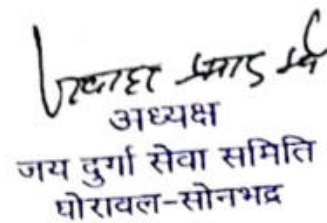 प्रसाद
अध्यक्ष
जय दुर्गा सेवा समिति
घोरावल-सोनभद्र